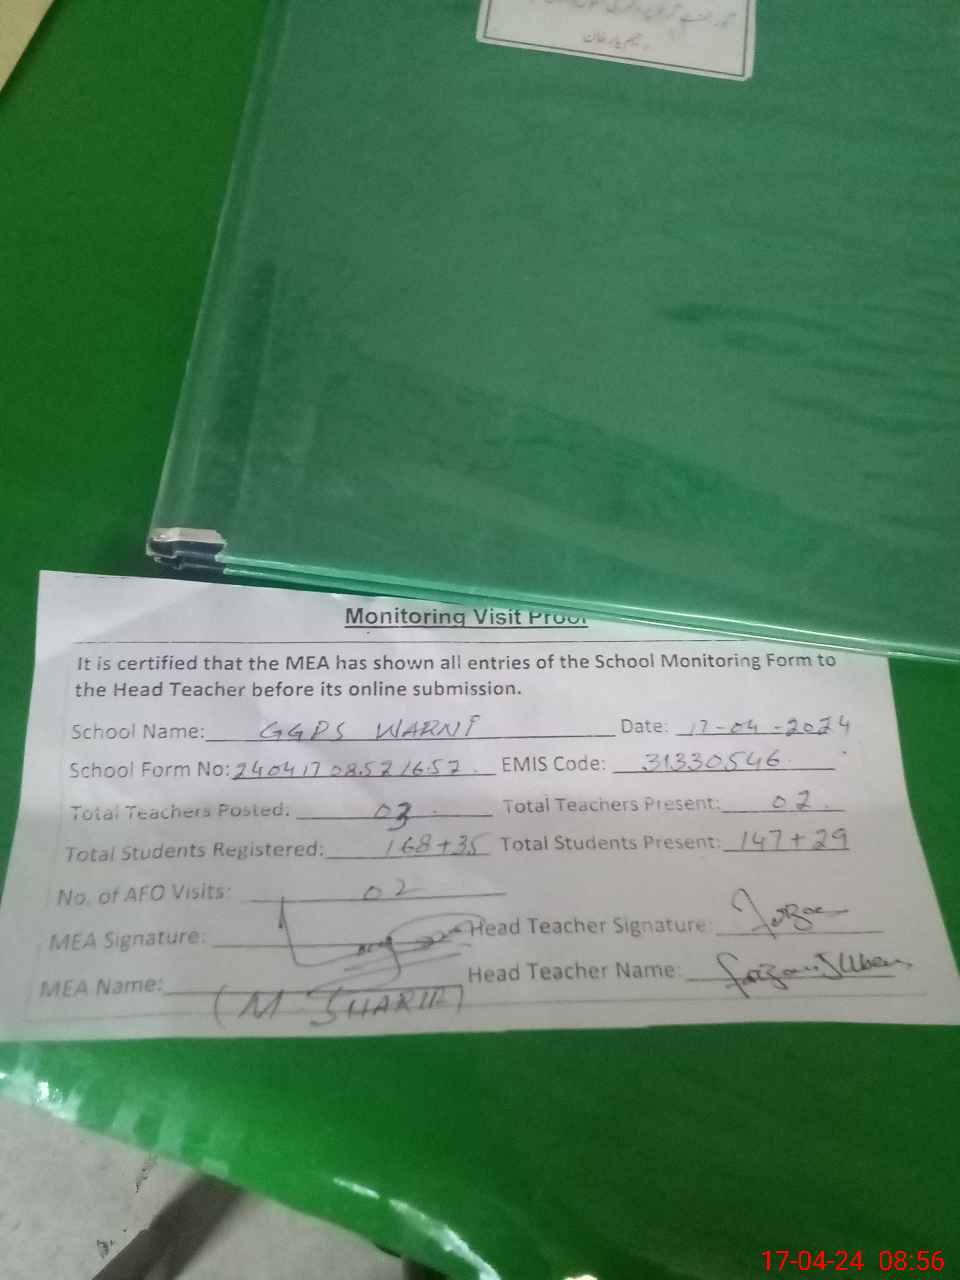 رحیم یار خان
Monitoring Visit Proof
It is certified that the MEA has shown all entries of the School Monitoring Form to
the Head Teacher before its online submission.
School Name: GGPS WARNI Date: 17-04-2024
School Form No: 24041708.521652 EMIS Code: 31330546
Total Teachers Posted: 03 Total Teachers Present: 02
Total Students Registered: 168+35 Total Students Present: 147+29
No. of AEO Visits: 02
MEA Signature: Head Teacher Signature:
MEA Name: (M SHARIF) Head Teacher Name:
17-04-24 08:56